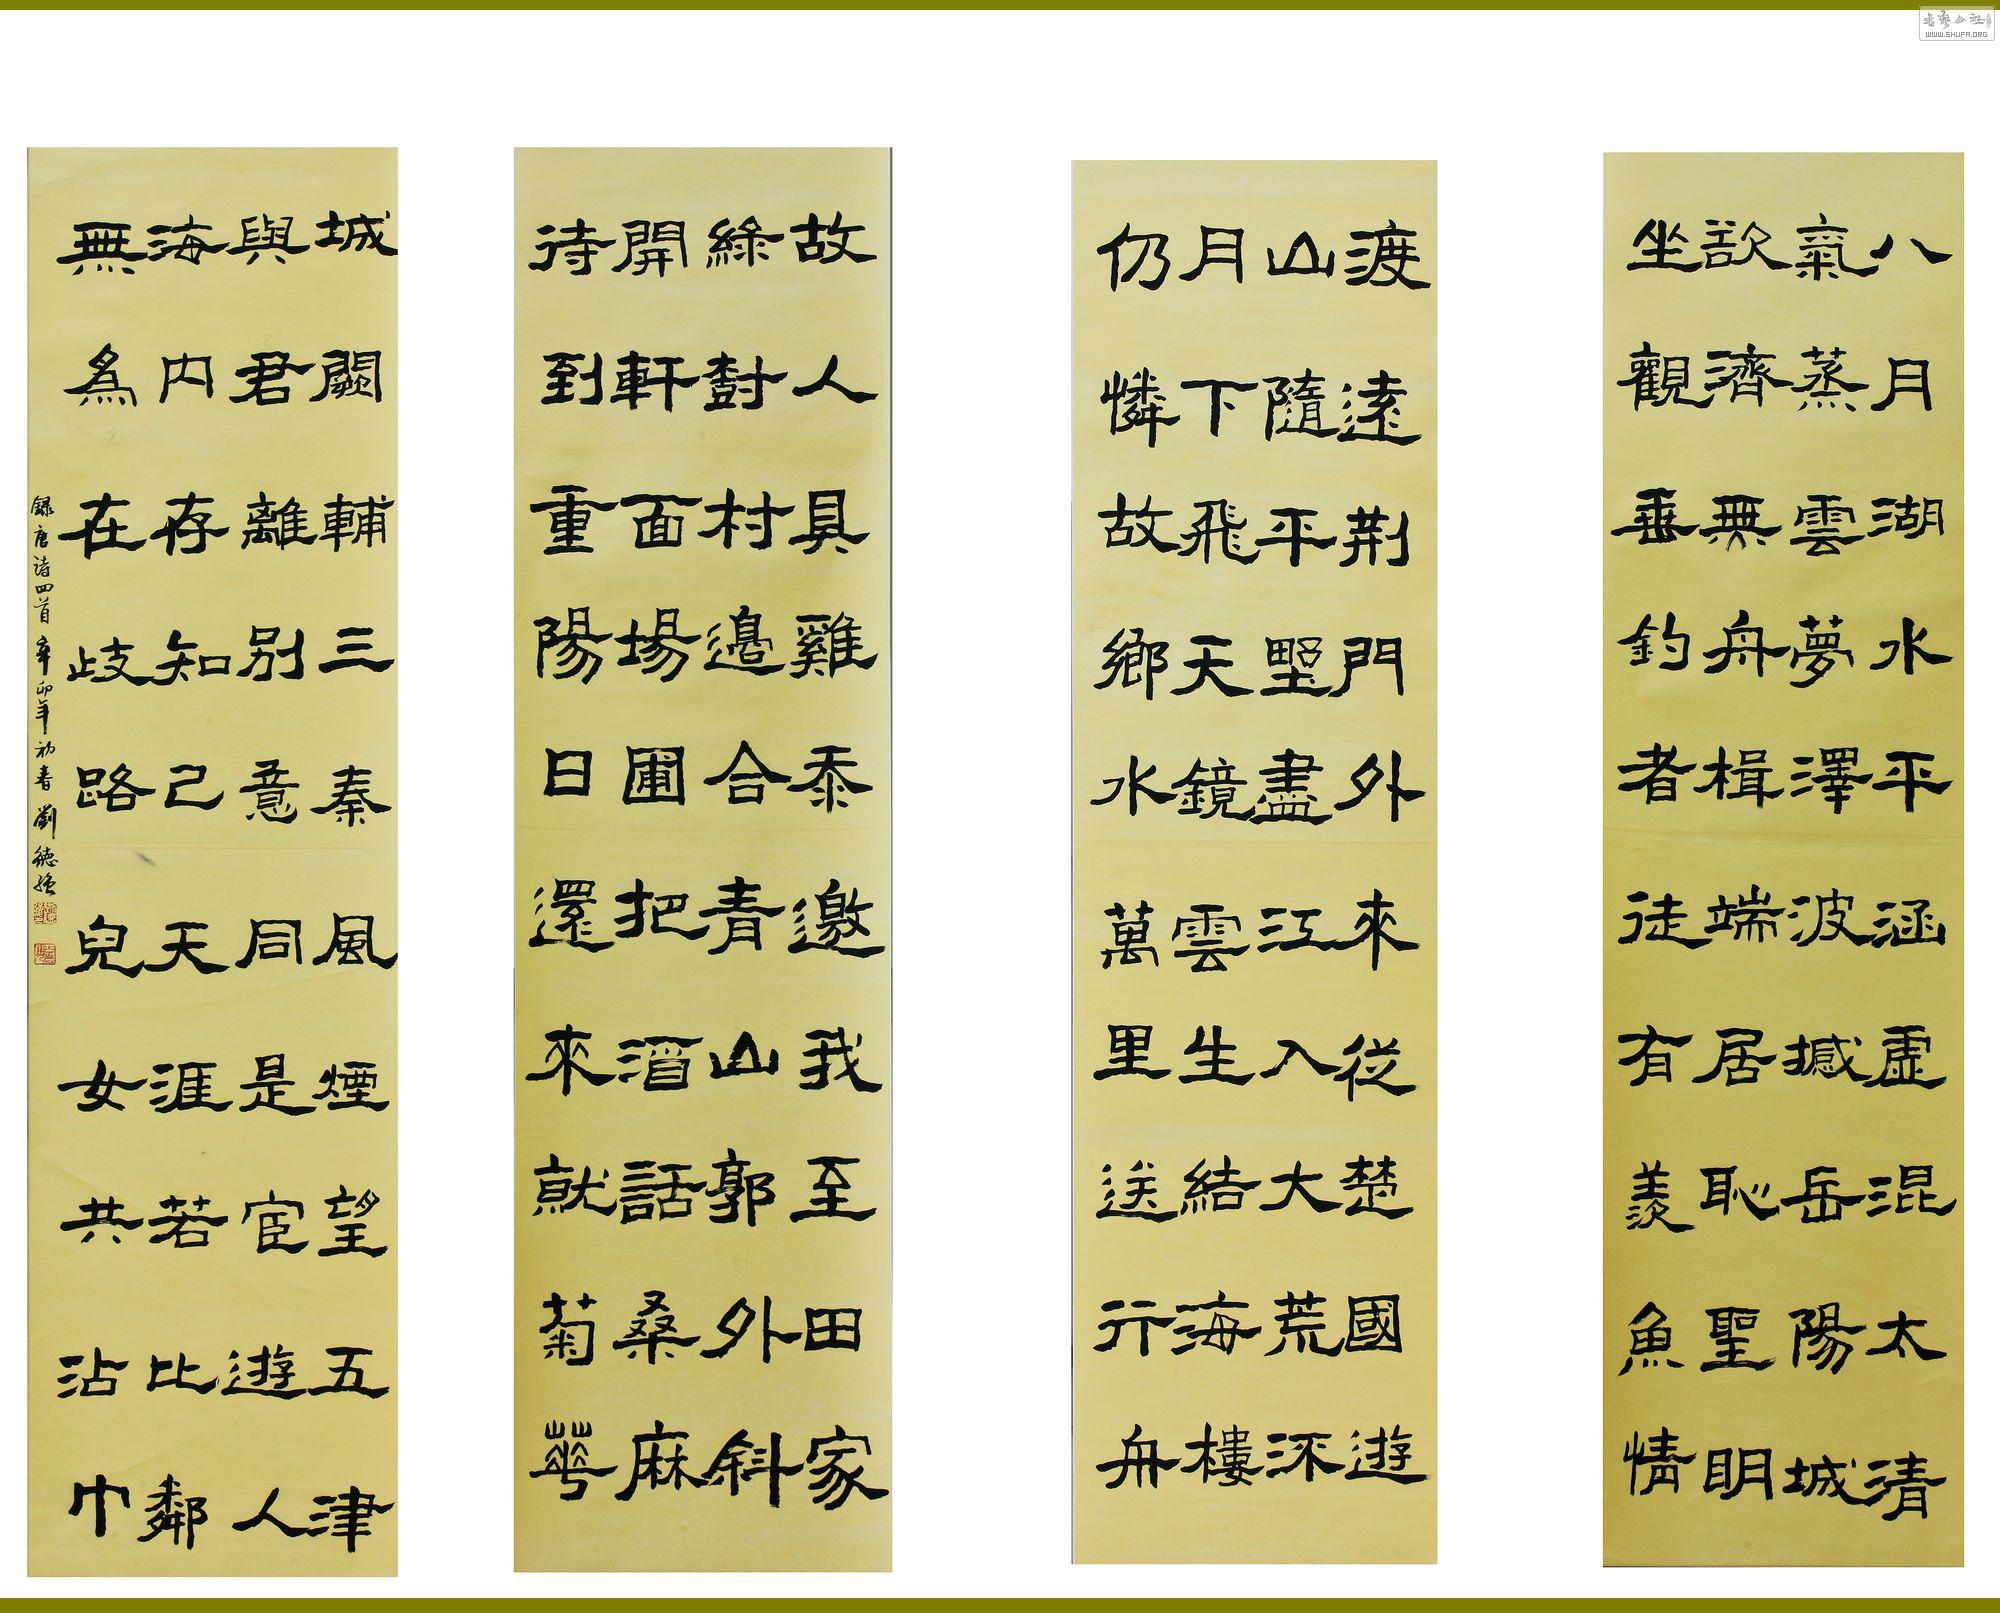 八月湖水平涵虛混太清
氣蒸雲夢澤波撼岳陽城
欲濟無舟楫端居恥聖明
坐觀垂釣者徒有羨魚情
渡遠荊門外來從楚國遊
山隨平墅盡江入大荒流
月下飛天鏡雲生結海樓
仍憐故鄉水萬里送行舟
故人具雞黍邀我至田家
綠樹村邊合青山郭外斜
開軒面場圃把酒話桑麻
待到重陽日還來就菊華
城闕輔三秦風煙望五津
與君離別意同是宦遊人
海內存知己天涯若比鄰
無為在歧路兒女共沾巾
錄唐诗四首辛卯年初春劉德強
書藝公社
WWW.SHUFA.ORG